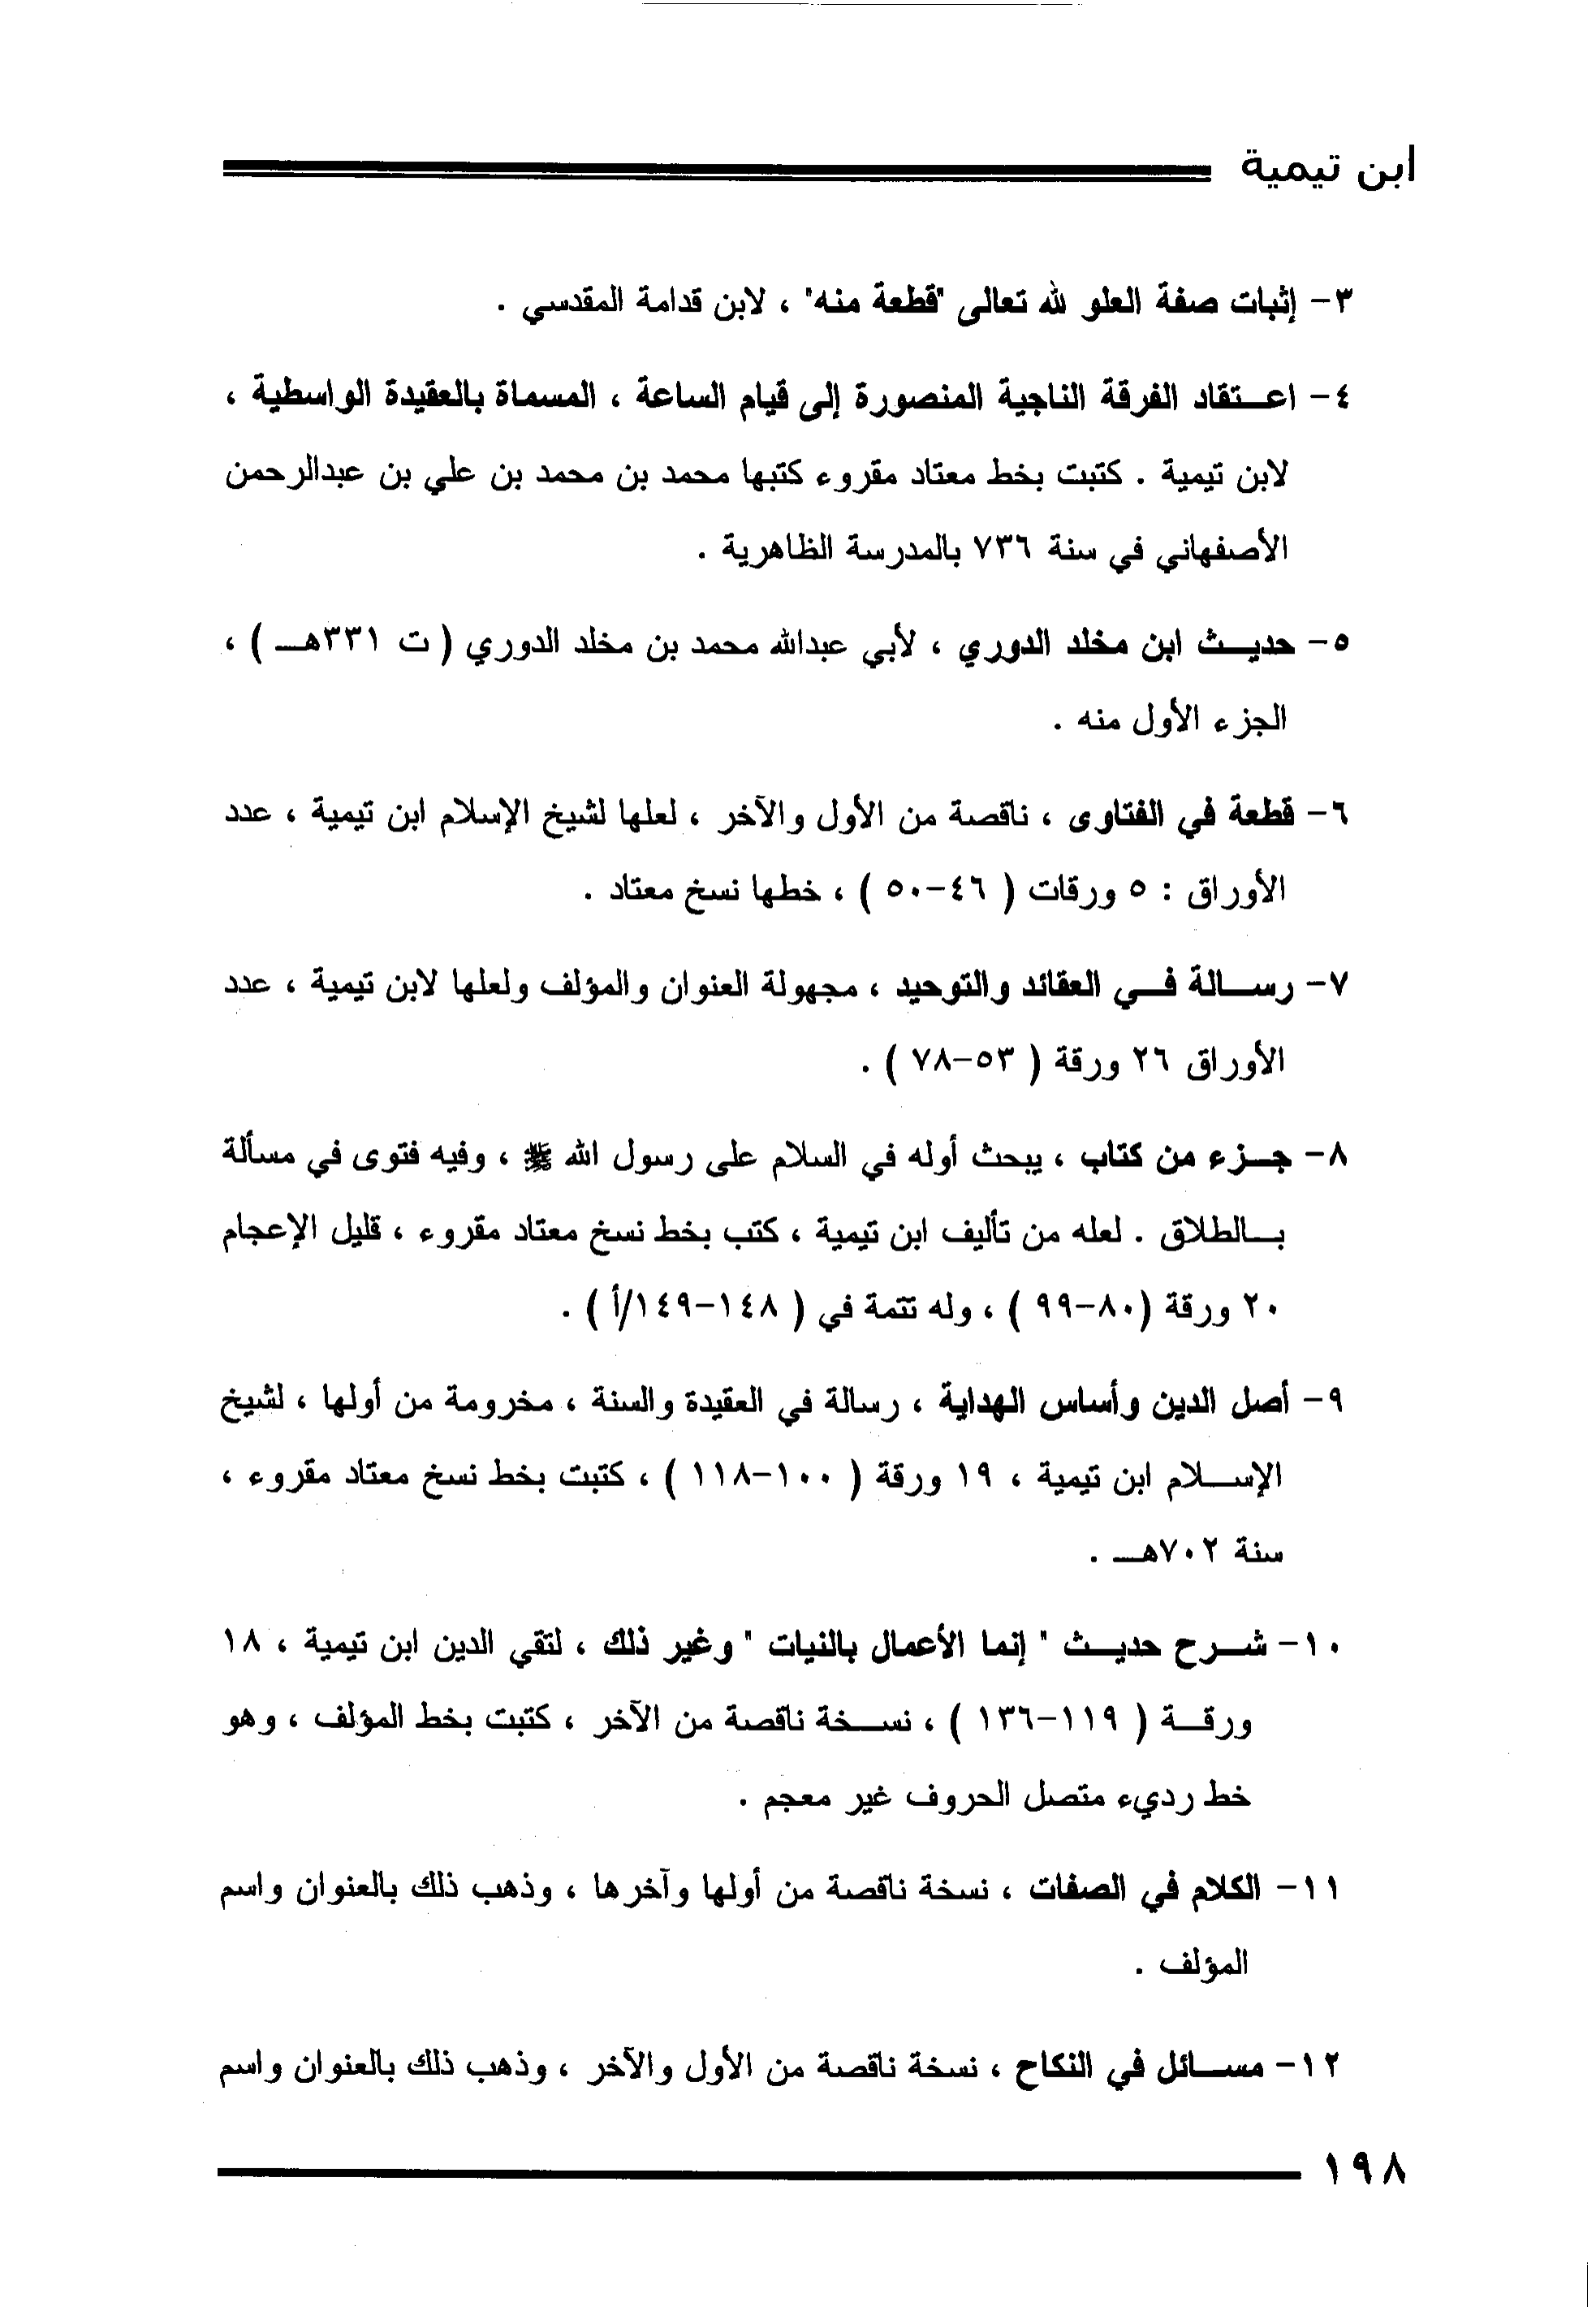 ابن تيمية
٣- إثبات صفة العلو لله تعالى "قطعة منه" ، لابن قدامة المقدسي .
٤- اعتقاد الفرقة الناجية المنصورة إلى قيام الساعة ، المسماة بالعقيدة الواسطية ،
لابن تيمية . كتبت بخط معتاد مقروء كتبها محمد بن محمد بن علي بن عبدالرحمن
الأصفهاني في سنة ٧٣٦ بالمدرسة الظاهرية .
٥- حديث ابن مخلد الدوري ، لأبي عبدالله محمد بن مخلد الدوري ( ت ٣٣١هـ ) ،
الجزء الأول منه .
٦- قطعة في الفتاوى ، ناقصة من الأول والآخر ، لعلها لشيخ الإسلام ابن تيمية ، عدد
الأوراق : ٥ ورقات ( ٤٦-٥٠ ) ، خطها نسخ معتاد .
٧- رسالة في العقائد والتوحيد ، مجهولة العنوان والمؤلف ولعلها لابن تيمية ، عدد
الأوراق ٢٦ ورقة ( ٥٣-٧٨ ) .
٨- جزء من كتاب ، يبحث أوله في السلام على رسول الله ﷺ ، وفيه فتوى في مسألة
بالطلاق . لعله من تأليف ابن تيمية ، كتب بخط نسخ معتاد مقروء ، قليل الإعجام
٢٠ ورقة (٨٠-٩٩ ) ، وله تتمة في ( ١٤٨-١٤٩/أ ) .
٩- أصل الدين وأساس الهداية ، رسالة في العقيدة والسنة ، مخرومة من أولها ، لشيخ
الإسلام ابن تيمية ، ١٩ ورقة ( ١٠٠-١١٨ ) ، كتبت بخط نسخ معتاد مقروء ،
سنة ٧٠٢هـ .
١٠- شرح حديث " إنما الأعمال بالنيات " وغير ذلك ، لتقي الدين ابن تيمية ، ١٨
ورقة ( ١١٩-١٣٦ ) ، نسخة ناقصة من الآخر ، كتبت بخط المؤلف ، وهو
خط رديء متصل الحروف غير معجم .
١١- الكلام في الصفات ، نسخة ناقصة من أولها وآخرها ، وذهب ذلك بالعنوان واسم
المؤلف .
١٢- مسائل في النكاح ، نسخة ناقصة من الأول والآخر ، وذهب ذلك بالعنوان واسم
١٩٨